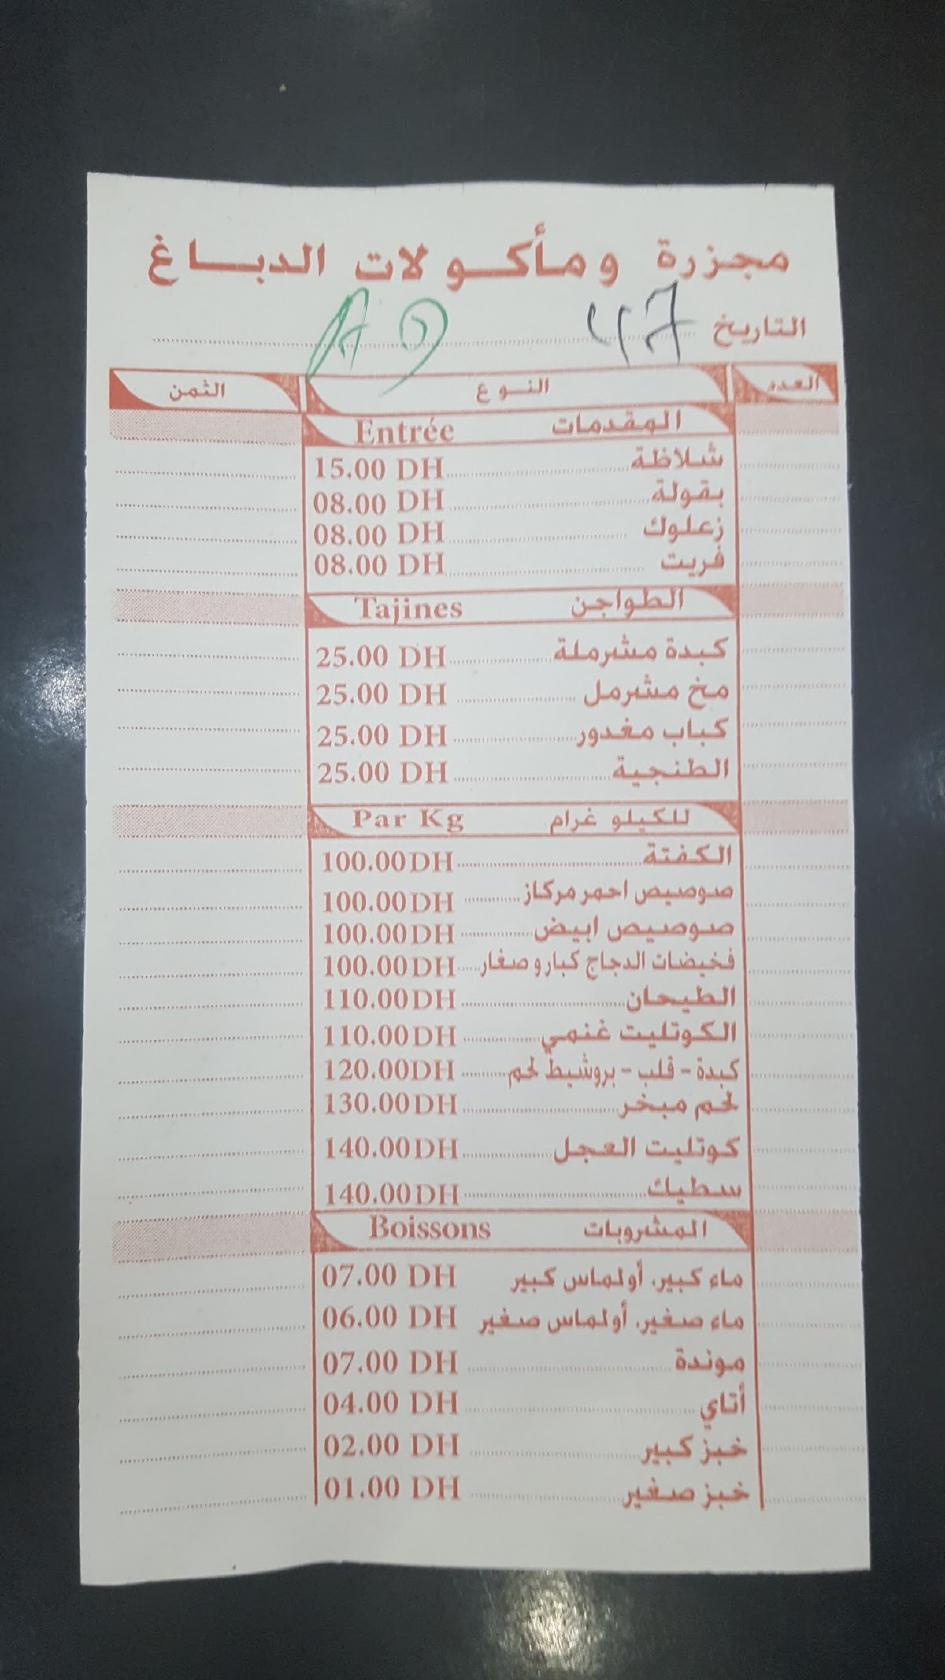 مجزرة ومأكولات الدباغ
التاريخ 47
العدد النوع الثمن
المقدمات Entrée
شلاظة 15.00 DH
بقولة 08.00 DH
زعلوك 08.00 DH
فريت 08.00 DH
الطواجن Tajines
كبدة مشرملة 25.00 DH
مخ مشرمل 25.00 DH
كباب مغدور 25.00 DH
الطنجية 25.00 DH
للكيلو غرام Par Kg
الكفتة 100.00DH
صوصيص احمر مركاز 100.00DH
صوصيص ابيض 100.00DH
فخيضات الدجاج كبار و صغار 100.00DH
الطيحان 110.00DH
الكوتليت غنمي 110.00DH
كبدة - قلب - بروشيط لحم 120.00DH
لحم مبخر 130.00DH
كوتليت العجل 140.00DH
سطيك 140.00DH
المشروبات Boissons
ماء كبير، أولماس كبير 07.00 DH
ماء صغير، أولماس صغير 06.00 DH
موندة 07.00 DH
أتاي 04.00 DH
خبز كبير 02.00 DH
خبز صغير 01.00 DH